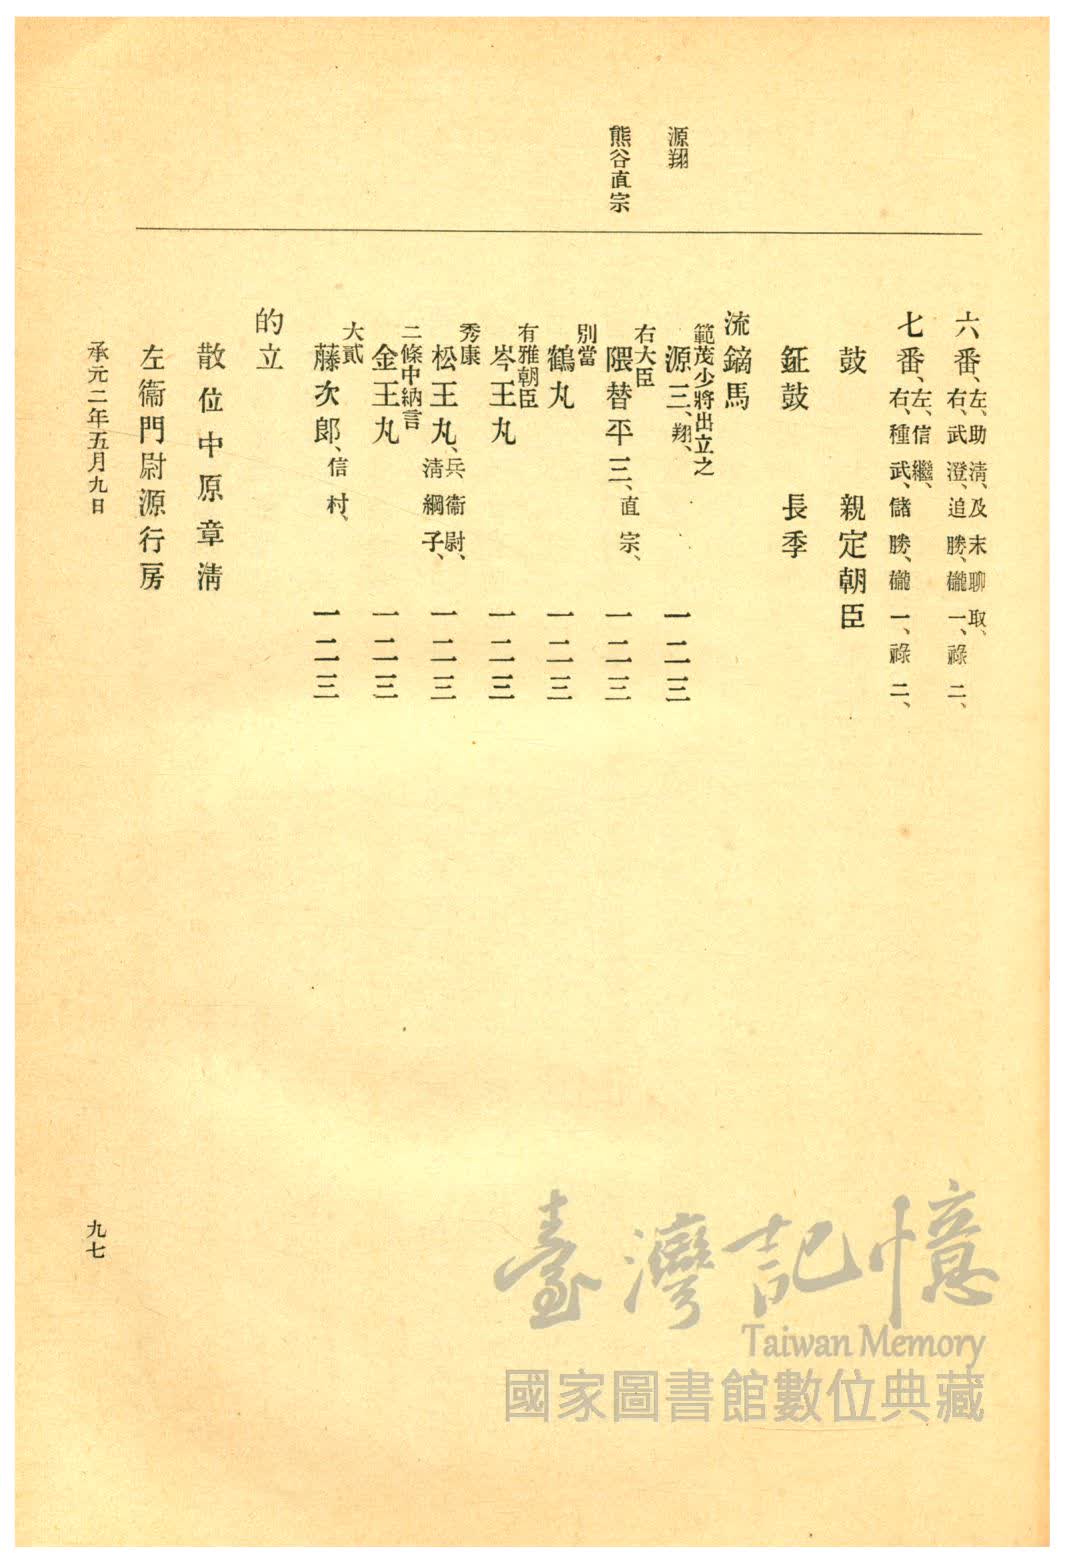 源翔
熊谷直宗
六番、左、助清、及末聊取、
右、武澄、追勝、𥗴一、祿二、
七番、左、信繼、
右、種武、儲勝、𥗴一、祿二、
鼓 親定朝臣
鉦鼓 長季
流鏑馬
範茂少將出立之
源三、翔、 一二三
右大臣
隈替平三、直宗、 一二三
別當
鶴丸 一二三
有雅朝臣
岑王丸 一二三
秀康
松王丸、兵衞尉、清綱子、 一二三
二條中納言
金王丸 一二三
大貳
藤次郎、信村、 一二三
的立
散位中原章清
左衞門尉源行房
承元二年五月九日
九七
臺灣記憶
Taiwan Memory
國家圖書館數位典藏